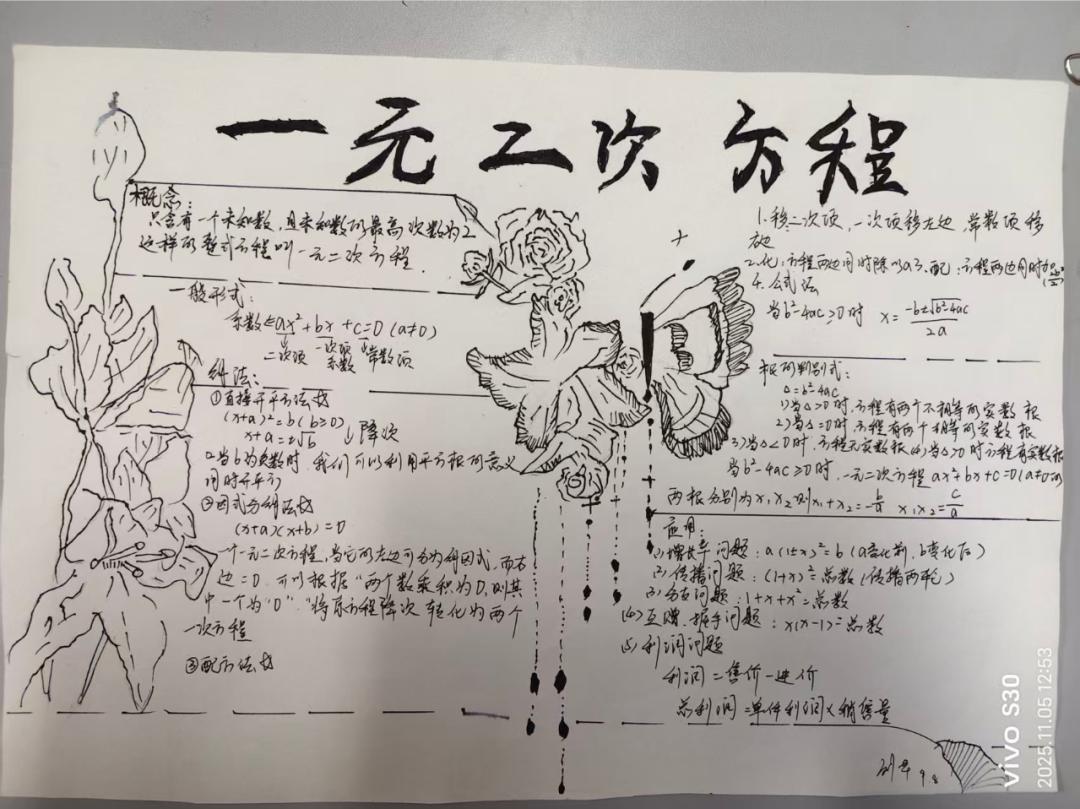 一元二次方程
概念:
只含有一个未知数,且未知数的最高次数为2
这样的整式方程叫一元二次方程.
一般形式:
系数←ax²+bx+c=0(a≠0)
二次项 一次项 常数项
系数
解法:
①直接开平方法
(x+a)²=b(b≥0)
x+a=±√b ↓降次
2.当b为负数时,我们可以利用平方根的意义
同时开平方
②因式分解法
(x+a)(x+b)=0
一个一元二次方程,当它的左边可分为解因式,而右
边=0,可以根据“两个数乘积为0,则其
中一个为“0”.“将原方程降次转化为两个
一次方程
③配方法
1.移:二次项,一次项移左边,常数项移
2.化:方程两边同时除以a 3.配:方程两边同时加
4.公式法
当b²-4ac≥0时 x=(-b±√(b²-4ac))/2a
根的判别式:
△=b²-4ac
1)当△>0时,方程有两个不相等的实数根
2)当△=0时,方程有两个相等的实数根
3)当△<0时,方程无实数根(4)当△≥0时方程有实数根
当b²-4ac≥0时,一元二次方程ax²+bx+c=0(a≠0)的
两根分别为x₁,x₂则x₁+x₂=-b/a x₁x₂=c/a
应用:
(1)增长率问题:a(1±x)²=b(a变化前,b变化后)
(2)传播问题:(1+x)²=总数(传播两轮)
(3)分支问题:1+x+x²=总数
(4)互赠、握手问题:x(x-1)=总数
(5)利润问题
利润=售价-进价
总利润=单件利润×销售量
9.8
vivo S30
2025.11.05 12:53